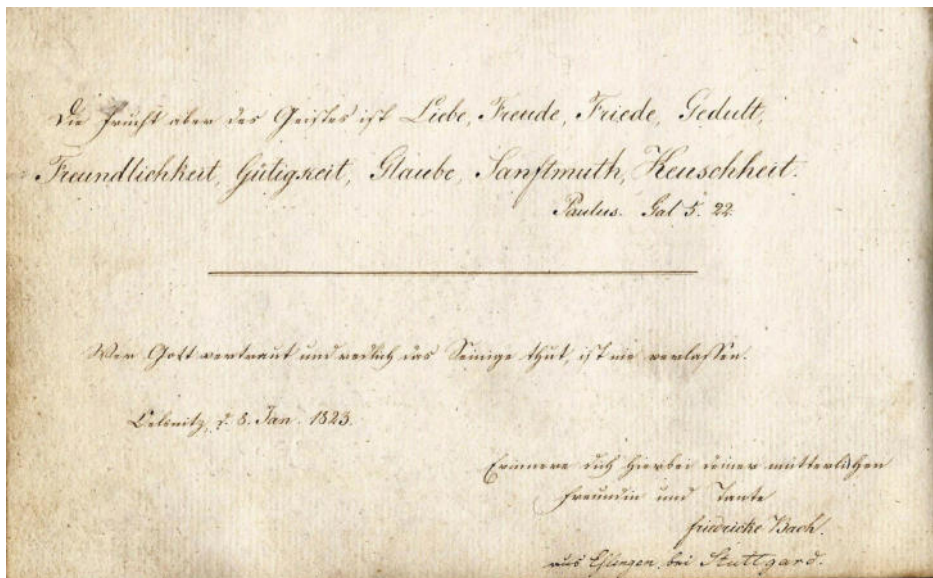 Die Frucht aber des Geistes ist Liebe, Freude, Friede, Gedult,
Freundlichkeit, Gütigkeit, Glaube, Sanftmuth, Keuschheit.
Paulus. Gal 5. 22.
Wer Gott vertraut und redlich das Seinige thut, ist nie verlassen.
Oelsnitz, d. 8. Jan. 1823.
Erinnere dich hierbei deiner mütterlichen
Freundin und Tante
Friedricke Bach.
aus Eßlingen bei Stuttgard.